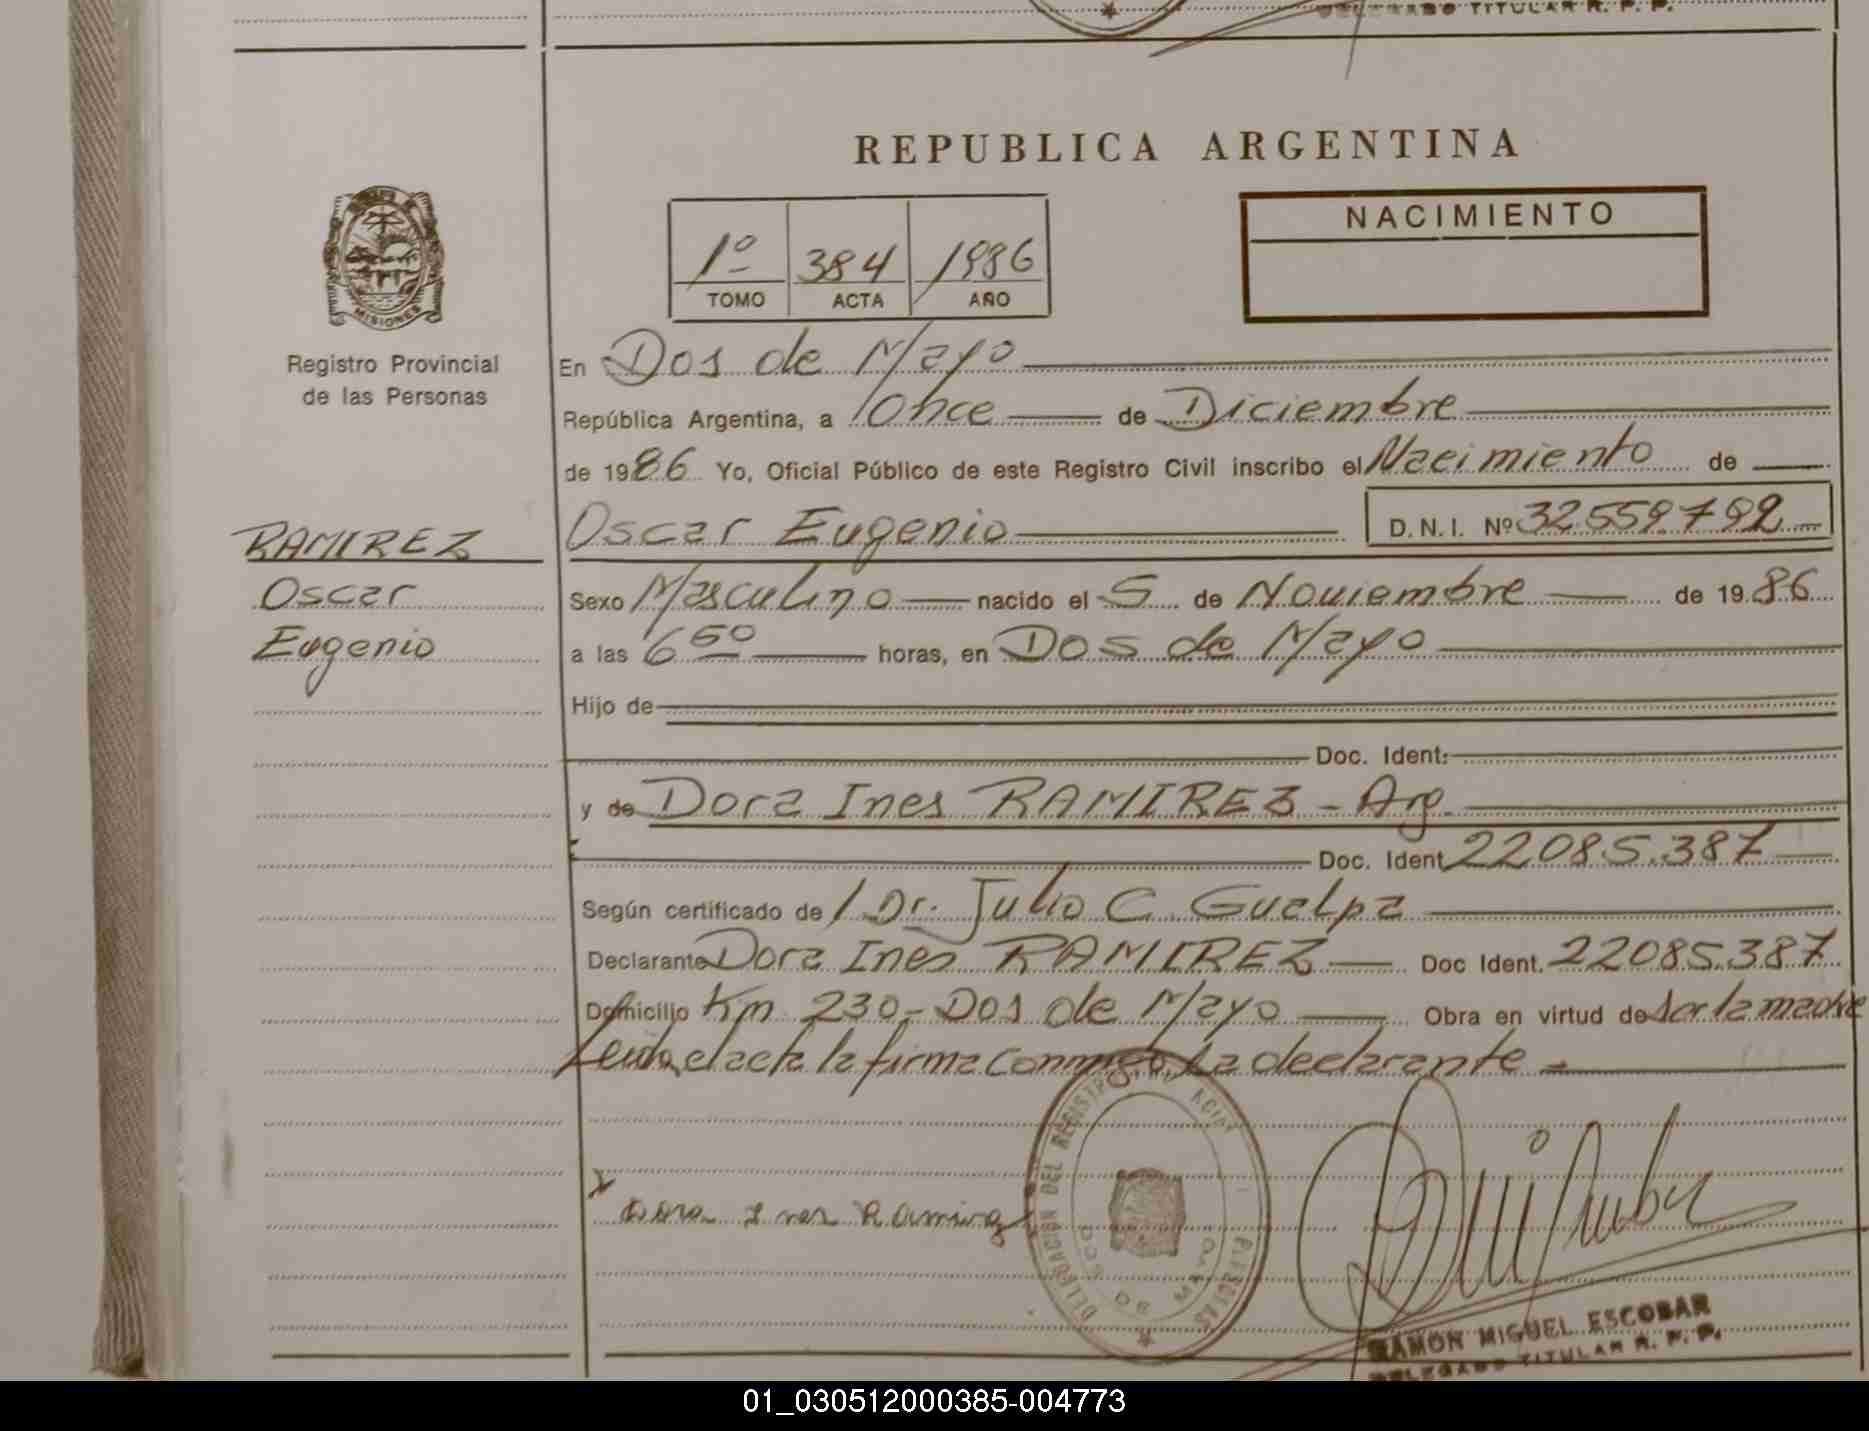 DELEGADO TITULAR R. P. P.
REPUBLICA ARGENTINA
NACIMIENTO
1º 384 1986
TOMO ACTA AÑO
MISIONES
Registro Provincial
de las Personas
En Dos de Mayo
República Argentina, a Once de Diciembre
de 1986 Yo, Oficial Público de este Registro Civil inscribo el Nacimiento de
RAMIREZ
Oscar
Eugenio
Oscar Eugenio D.N.I. Nº 32.559.792
Sexo Masculino nacido el 5 de Noviembre de 1986
a las 6 50 horas, en Dos de Mayo
Hijo de
Doc. Ident:
y de Dora Ines RAMIREZ - Arg.
Doc. Ident 22085.387
Según certificado de Dr. Julio C. Guelpa
Declarante Dora Ines RAMIREZ Doc Ident. 22085.387
Domicilio Km 230 - Dos de Mayo Obra en virtud de ser la madre
Leida el acta la firma conmigo, La declarante
DELEGACION DEL REGISTRO
DOS DE MAYO
Dora Ines Ramirez
RAMON MIGUEL ESCOBAR
DELEGADO TITULAR R. P. P.
01_030512000385-004773